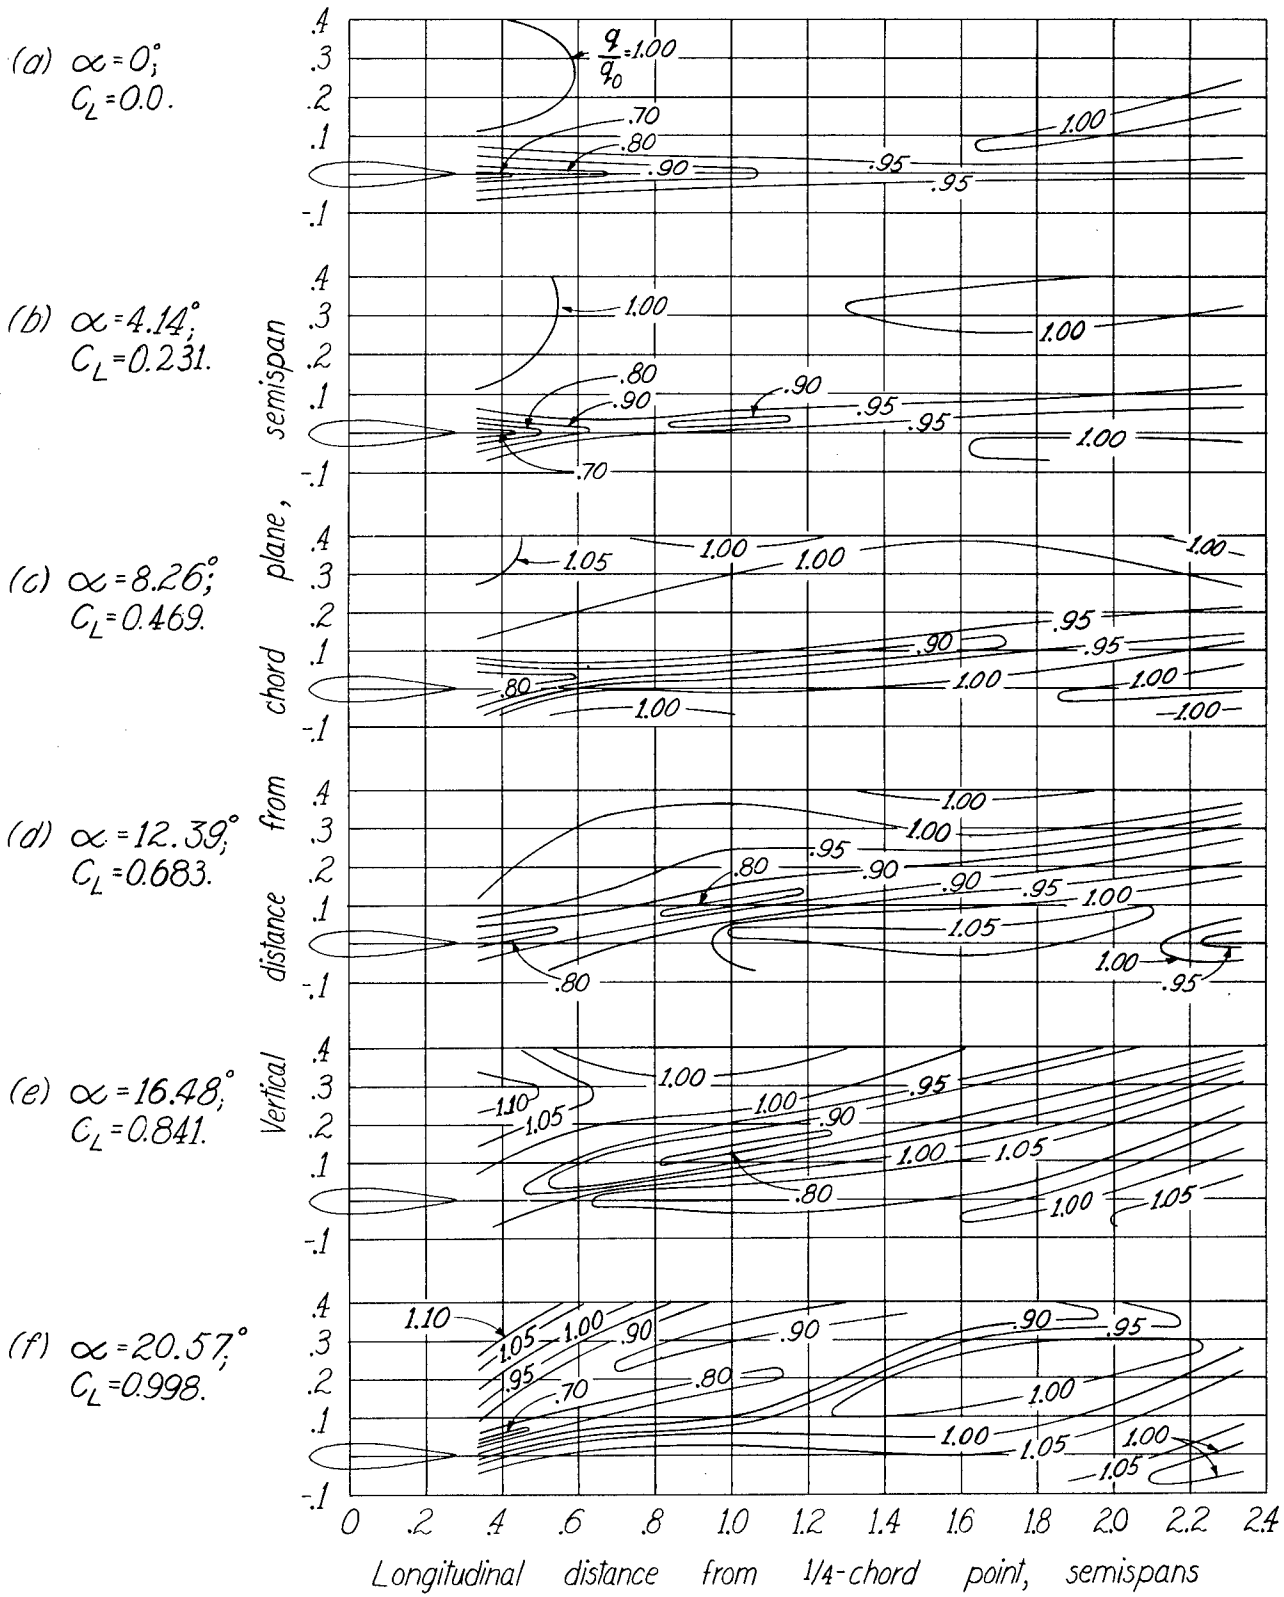 (a) α=0°;
C_L=0.0.
.4
.3
.2
.1
-.1
q/q₀=1.00
.70
.80
.90
.95
.95
1.00
(b) α=4.14°;
C_L=0.231.
.4
.3
.2
.1
-.1
1.00
.80
.90
.70
.90
.95
.95
1.00
1.00
(c) α=8.26°;
C_L=0.469.
.4
.3
.2
.1
-.1
1.05
1.00
1.00
1.00
.95
.90
.95
.80
1.00
1.00
1.00
1.00
(d) α=12.39°;
C_L=0.683.
.4
.3
.2
.1
-.1
1.00
1.00
.95
.80
.90
.90
.95
1.00
1.05
.80
1.00
.95
(e) α=16.48°;
C_L=0.841.
.4
.3
.2
.1
-.1
1.00
1.10
1.05
1.00
.95
.90
1.00
1.05
.80
1.00
1.05
(f) α=20.57°;
C_L=0.998.
.4
.3
.2
.1
-.1
1.10
1.05
1.00
.90
.90
.90
.95
.95
.70
.80
1.00
1.00
1.05
1.00
1.05
Vertical distance from chord plane, semispan
0 .2 .4 .6 .8 1.0 1.2 1.4 1.6 1.8 2.0 2.2 2.4
Longitudinal distance from 1/4-chord point, semispans